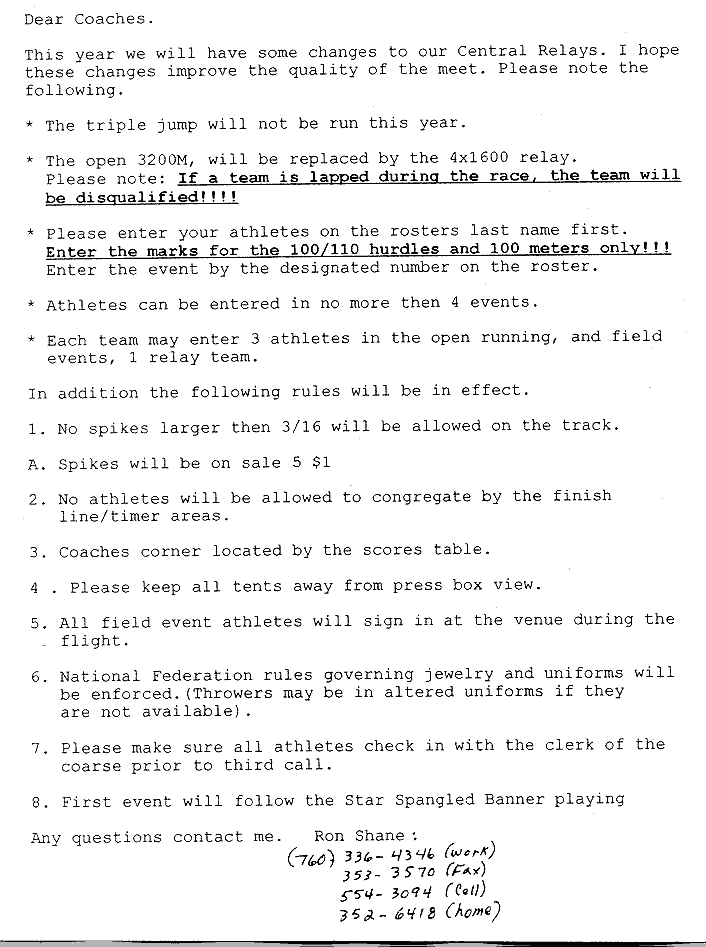 Dear Coaches.
This year we will have some changes to our Central Relays. I hope
these changes improve the quality of the meet. Please note the
following.
* The triple jump will not be run this year.
* The open 3200M, will be replaced by the 4x1600 relay.
Please note: If a team is lapped during the race, the team will
be disqualified!!!!
* Please enter your athletes on the rosters last name first.
Enter the marks for the 100/110 hurdles and 100 meters only!!!
Enter the event by the designated number on the roster.
* Athletes can be entered in no more then 4 events.
* Each team may enter 3 athletes in the open running, and field
events, 1 relay team.
In addition the following rules will be in effect.
1. No spikes larger then 3/16 will be allowed on the track.
A. Spikes will be on sale 5 $1
2. No athletes will be allowed to congregate by the finish
line/timer areas.
3. Coaches corner located by the scores table.
4 . Please keep all tents away from press box view.
5. All field event athletes will sign in at the venue during the
flight.
6. National Federation rules governing jewelry and uniforms will
be enforced.(Throwers may be in altered uniforms if they
are not available).
7. Please make sure all athletes check in with the clerk of the
coarse prior to third call.
8. First event will follow the Star Spangled Banner playing
Any questions contact me. Ron Shane:
(760) 336-4346 (work)
353-3570 (Fax)
554-3094 (Cell)
352-6418 (home)